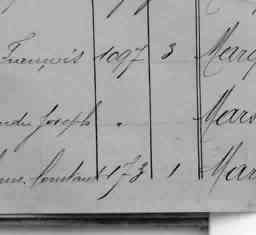 François 1097 3 Marq
Joseph " Mars
Constant 1173 1 Mar